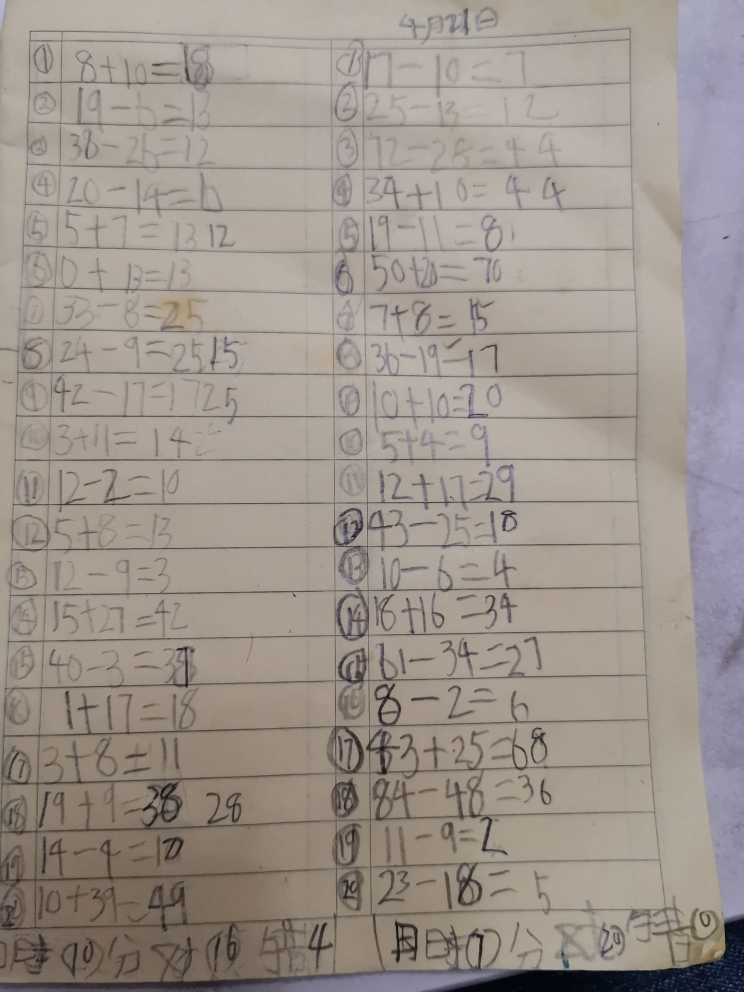 4月21日
① 8+10=18
② 19-6=13
③ 38-26=12
④ 20-14=6
⑤ 5+7=13 12
⑥ 0+13=13
⑦ 33-8=25
⑧ 24-9=25 15
⑨ 42-17=17 25
⑩ 3+11=14
⑪ 12-2=10
⑫ 5+8=13
⑬ 12-9=3
⑭ 15+27=42
⑮ 40-3=37
⑯ 1+17=18
⑰ 3+8=11
⑱ 19+9=38 28
⑲ 14-4=10
⑳ 10+39=49
用时(10)分 对(16) 错4
① 17-10=7
② 25-13=12
③ 72-28=44
④ 34+10=44
⑤ 19-11=8
⑥ 50+20=70
⑦ 7+8=15
⑧ 36-19=17
⑨ 10+10=20
⑩ 5+4=9
⑪ 12+17=29
⑫ 43-25=18
⑬ 10-6=4
⑭ 18+16=34
⑮ 61-34=27
⑯ 8-2=6
⑰ 43+25=68
⑱ 84-48=36
⑲ 11-9=2
⑳ 23-18=5
用时(7)分 对(20) 错(0)